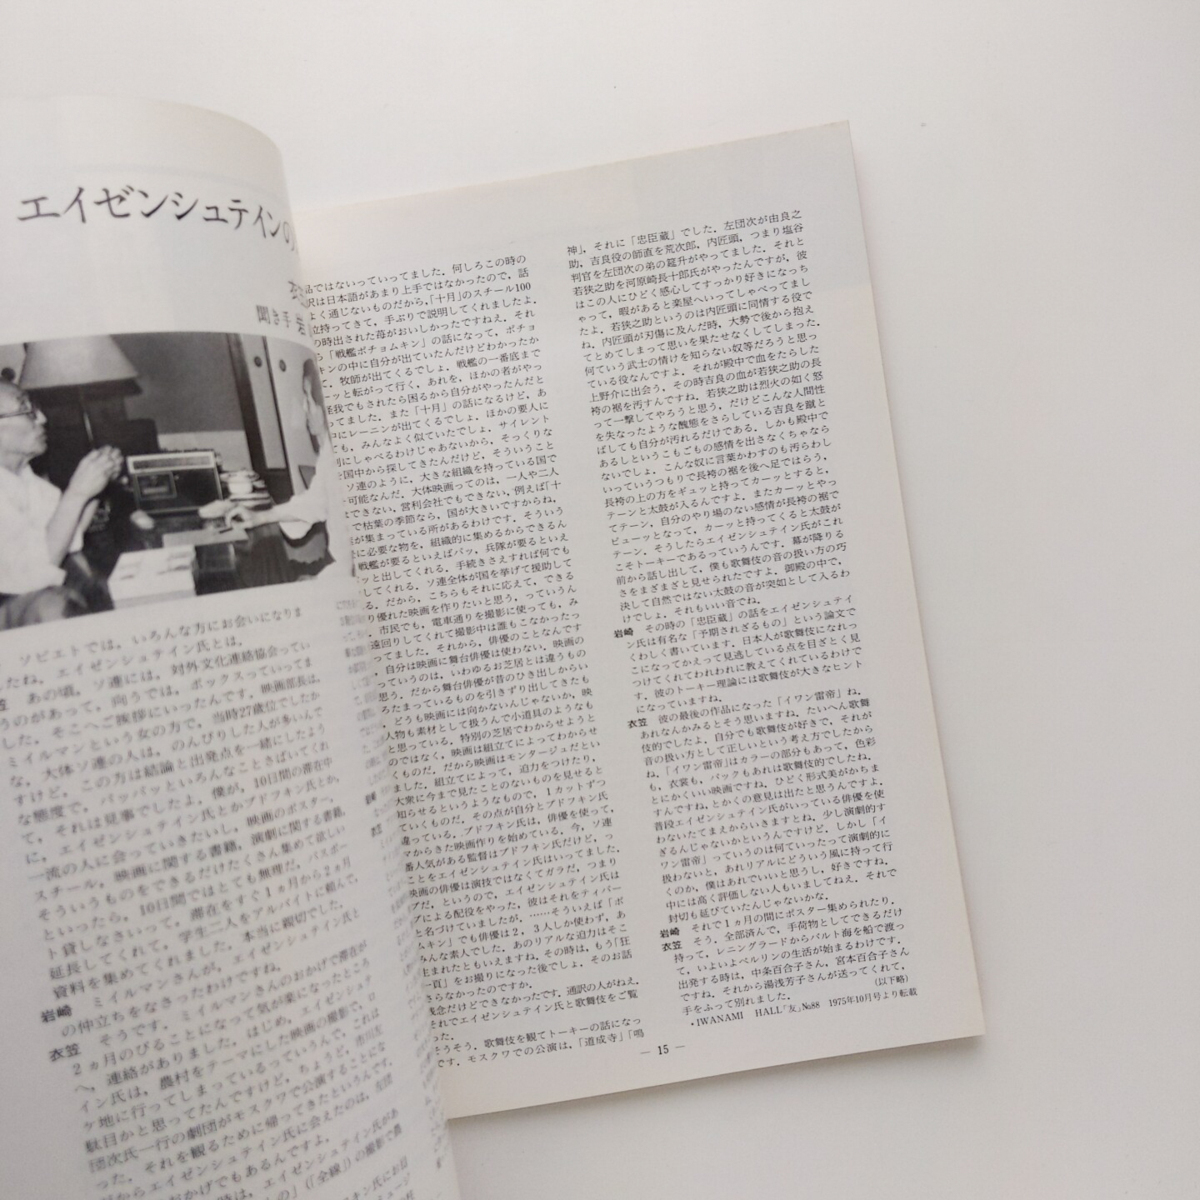 エイゼンシュテインの
聞き手
ソビエトでは，いろんな方にお会いになりま
したね，エイゼンシュテイン氏とは．
あの頃，ソ連には，対外文化連絡協会ってい
うのがあって，向うでは，ボックスっていってま
した．そこへご挨拶にいったんです．映画部長は，
ミイルマンという女の方で，当時27歳位でしたか
な，大体ソ連の人は，のんびりした人が多いんで
すけど，この方は結論と出発点を一緒にしたよう
な態度で，バッバッといろんなことさばいてくれ
て，それは見事でしたよ．僕が，10日間の滞在中
に，エイゼンシュテイン氏とかプドフキン氏とか，
一流の人に会っていきたいし，映画のポスター，
スチール，映画に関する書籍，演劇に関する書籍，
そういうものをできるだけたくさん集めて欲しい
といったら，10日間ではとても無理だ，パスポー
ト貸しなさいって，滞在をすぐ1ヵ月から2ヵ月
延長してくれて，学生二人をアルバイトに組んで，
資料を集めてくれました．本当に親切でした．
岩崎　ミイルマンさんが，エイゼンシュテイン氏と
の仲立ちをなさったわけですね．
衣笠　そうです．ミイルマンさんのおかげで滞在が
2ヵ月のびることになって気が楽になったところ
へ，連絡がありました．はじめ，エイゼンシュテ
イン氏は，農村をテーマにした映画の撮影で，ロ
ケ地に行ってしまっているっていうんで，これは
駄目かと思ってたんですけど，ちょうど，市川左
団次氏一行の劇団がモスクワで公演することにな
った．それを観るために帰ってきたというんです．
品ではないっていってました．何しろこの時の
訳は日本語があまり上手ではなかったので，話
よく通じないものだから，「十月」のスチール100
立持ってきて，手ぶりで説明してくれましたよ．
の時出された苺がおいしかったですねえ．それ
ら「戦艦ポチョムキン」の話になって，ポチョ
キンの中に自分が出ていたんだけどわかったか
て，牧師が出てくるでしょ，戦艦の一番底まで
ーッと転がって行く，あれを，ほかの者がやっ
怪我でもされたら困るから自分がやったんだと
ってました．また「十月」の話になるけど，あ
中にレーニンが出てくるでしょ．ほかの要人に
ても，みんなよく似ていたでしょ．サイレント
別にしゃべるわけじゃあないから，そっくりな
を国中から探してきたんだけど，そういうこと
ソ連のように，大きな組織を持っている国で
可能なんだ．大体映画ってのは，一人や二人
はできない，営利会社でもできない，例えば「十
で枯葉の季節なら，国が大きいですからね，
が集まっている所があるわけです．そういう
に必要な物を，組織的に集めるからできるん
戦艦が要るといえばパッ，兵隊が要るといえ
ッと出してくれる．手続きさえすれば何でも
してくれる．ソ連全体が国を挙げて援助して
る．だから，こちらもそれに応えて，できる
り優れた映画を作りたいと思う，っていうん
．市民でも，電車通りを撮影に使っても，み
遠回りしてくれて撮影中は誰もこなかったっ
ってました．それから，俳優のことなんです
，自分は映画に舞台俳優は使わない．映画の
っていうのは，いわゆるお芝居とは違うもの
思う．だから舞台俳優が昔のひき出しからい
ろたまっているものを引きずり出してきても
，どうも映画には向かないんじゃないか，映
人物も素材として扱うんで小道具のようなも
と思っている．特別の芝居でわからせようと
のではなく，映画は組立てによってわからせ
くものだ．だから映画はモンタージュだとい
ました．組立てによって，迫力をつけたり，
大衆に今まで見たことのないものを見せると
知らせるというようなもので，1カットずつ
ていくものだ．その点が自分とプドフキン氏
違っている．プドフキン氏は，俳優を使って，
マからきた映画作りを始めている．今，ソ連
番人気がある監督はプドフキン氏だけど，っ
ことをエイゼンシュテイン氏はいってました．
映画の俳優は演技ではなくてガラだ，つまり
プだ，というので，エイゼンシュテイン氏は
プによる配役をやった，彼はそれをティパー
と名づけていましたが，……そういえば「ポ
ムキン」でも俳優は2，3人しか使わず，あ
みんな素人でした．あのリアルな迫力はそこ
生まれたともいえますね．その時は，もう「狂
一頁」をお撮りになった後でしょ．そのお話
さらなかったのですか．
残念だけどできなかったです．通訳の人がねえ．
それでエイゼンシュテイン氏と歌舞伎をご覧
った．
そうそう．歌舞伎を観てトーキーの話になっ
です．モスクワでの公演は，「道成寺」「鳴
神」，それに「忠臣蔵」でした．左団次が由良之
助，吉良役の師直を荒次郎，内匠頭，つまり塩谷
判官を左団次の弟の莚升がやってました．それと
若狭之助を河原崎長十郎氏がやったんですが，彼
はこの人にひどく感心してすっかり好きになっち
ゃって，暇があると楽屋へいってしゃべってまし
たよ．若狭之助というのは内匠頭に同情する役で
ね，内匠頭が刃傷に及んだ時，大勢で後から抱え
てとめてしまって思いを果たせなくしてしまった．
何ていう武士の情けを知らない奴等だろうと思っ
ている役なんですよ．それが殿中で血をたらした
上野介に出会う，その時吉良の血が若狭之助の長
袴の裾を汚すんですね．若狭之助は烈火の如く怒
って一撃してやろうと思う，だけどこんな人間性
を失なったような醜態をさらしている吉良を蹴と
ばしても自分が汚れるだけである．しかも殿中で
あるしというこもごもの感情を出さなくちゃなら
ないでしょ．こんな奴に言葉かわすのも汚らわし
いっていうつもりで長袴の裾を後へ足ではらう，
長袴の上の方をギュッと持ってカーッとすると，
テーンと太鼓が入るんですよ．またカーッとやっ
てテーン，自分のやり場のない感情が長袴の裾で
ビューッとなって，カーッと持ってくると太鼓が
テーン，そうしたらエイゼンシュテイン氏がこれ
こそトーキーであるっていうんです．幕が降りる
前から話し出して，僕も歌舞伎の音の扱い方の巧
さをまざまざと見せられたですよ．御殿の中で，
決して自然ではない太鼓の音が突如として入るわ
けでしょ，それもいい音でね．
岩崎　その時の「忠臣蔵」の話をエイゼンシュテイ
ン氏は有名な「予期されざるもの」という論文で
くわしく書いています．日本人が歌舞伎になれっ
こになってかえって見逃している点を目ざとく見
つけてくれてわれわれに教えてくれているわけで
す．彼のトーキー理論には歌舞伎が大きなヒント
になっていますね．
衣笠　彼の最後の作品になった「イワン雷帝」ね，
あれなんかみるとそう思いますね．たいへん歌舞
伎的でしたよ．自分でも歌舞伎が好きで，それが
音の扱い方として正しいという考え方でしたから
ね．「イワン雷帝」はカラーの部分もあって，色彩
も，衣裳も，バックもあれは歌舞伎的でしたね．
とにかくいい映画ですね．ひどく形式美がかちま
すんですね．とかくの意見は出たと思うんですよ．
普段エイゼンシュテイン氏がいっている俳優を使
わないたてまえからいきますとね．少し演劇的す
ぎるんじゃないかというんですけど，しかし「イ
ワン雷帝」っていうのは何ていったって演劇的に
扱わないと，あれリアルにどういう風に持って行
くのか，僕はあれでいいと思うし，好きですね．
中には高く評価しない人もいましてねえ．それで
封切も延びていたんじゃないかな．
岩崎　それで1ヵ月の間にポスター集められたり，
衣笠　そう，全部済んで，手荷物としてできるだけ
持って，レニングラードからバルト海を船で渡っ
て，いよいよベルリンの生活が始まるわけです．
出発する時は，中条百合子さん，宮本百合子さん
ですね，それから湯浅芳子さんが送ってくれて，
手をふって別れました．
（以下略）
・IWANAMI HALL「友」№88 1975年10月号より転載
— 15 —